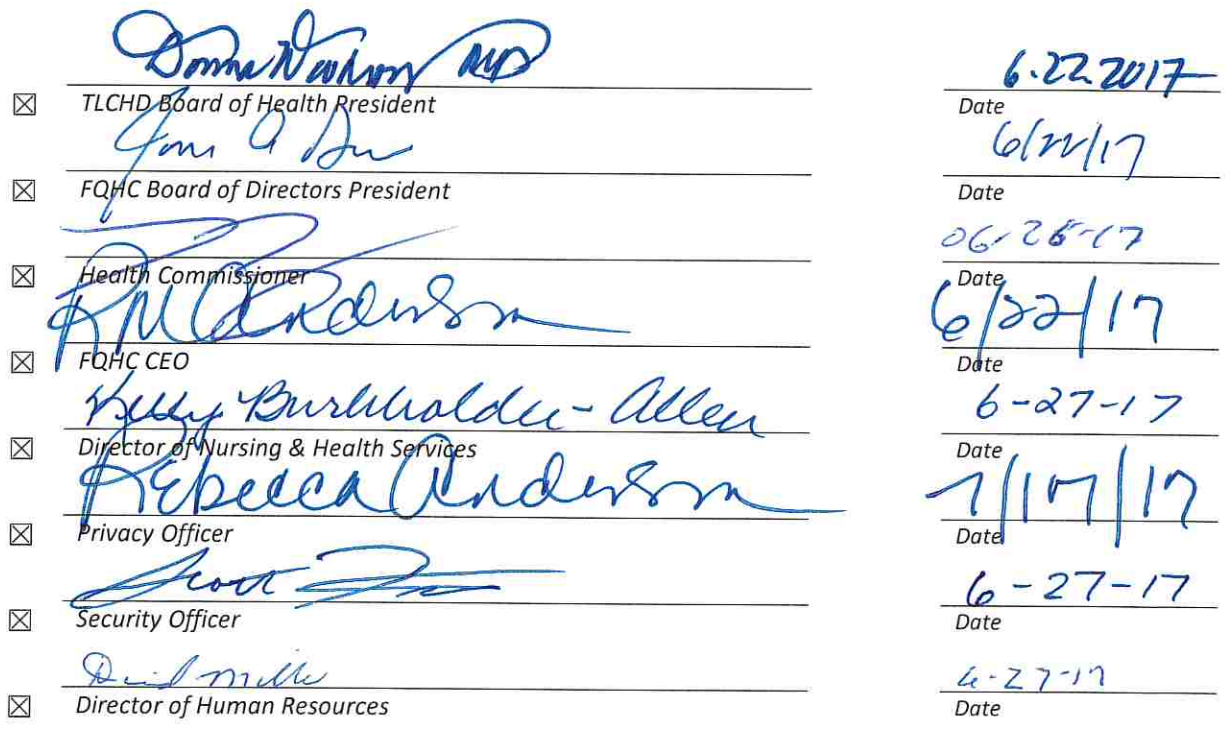 Donna MD 6.22.2017
☒ TLCHD Board of Health President Date
A 6/22/17
☒ FQHC Board of Directors President Date
06-26-17
☒ Health Commissioner Date
RM Anderson 6/22/17
☒ FQHC CEO Date
Kelly Burkholder-Allen 6-27-17
☒ Director of Nursing & Health Services Date
Rebecca Anderson 7/17/17
☒ Privacy Officer Date
Scott 6-27-17
☒ Security Officer Date
David Miller 6-27-17
☒ Director of Human Resources Date